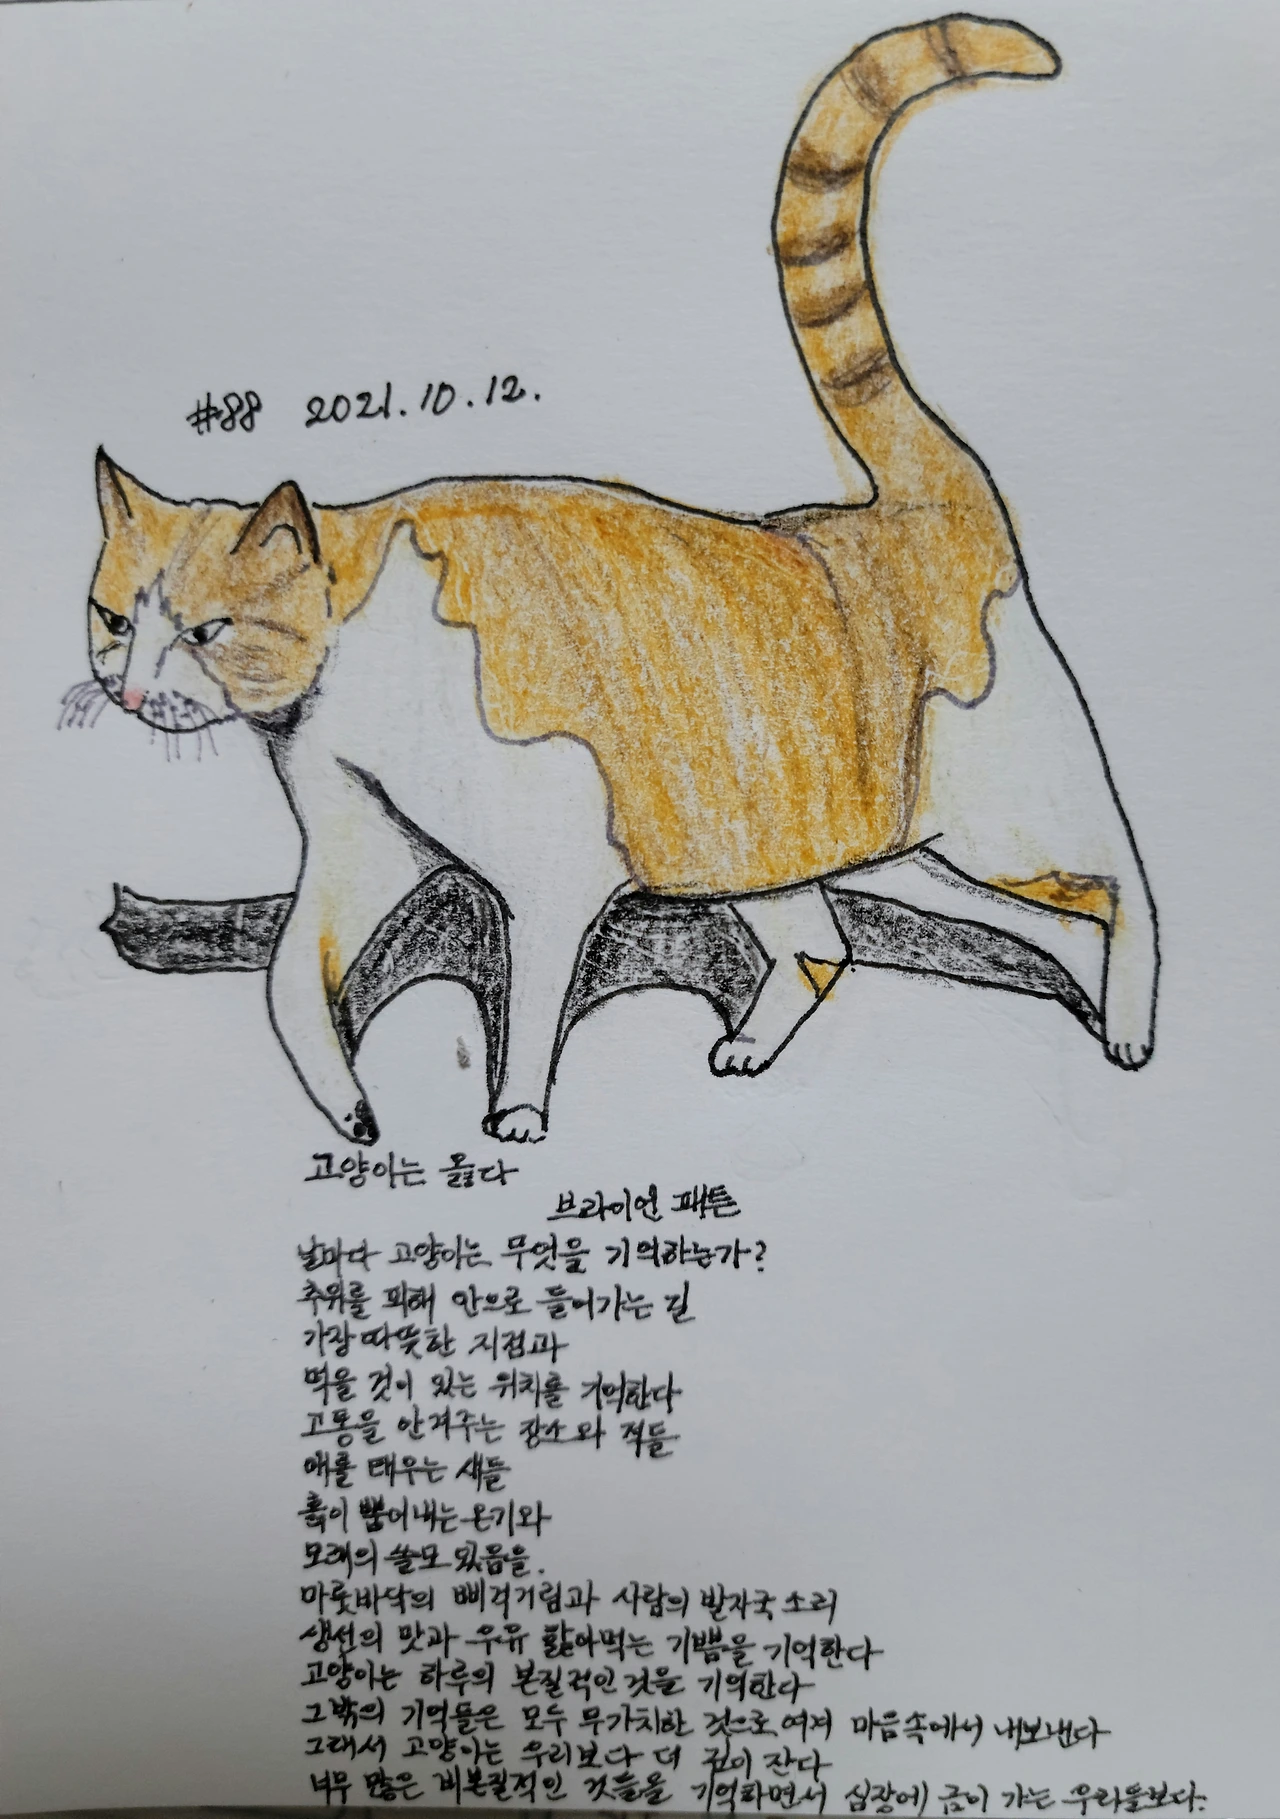 #88 2021.10.12.
고양이는 옳다
브라이언 패튼
날마다 고양이는 무엇을 기억하는가?
추위를 피해 안으로 들어가는 길
가장 따뜻한 지점과
먹을 것이 있는 위치를 기억한다
고통을 안겨주는 장소와 적들
애를 태우는 새들
흙이 뿜어내는 온기와
모래의 쓸모 있음을.
마룻바닥의 삐걱거림과 사람의 발자국 소리
생선의 맛과 우유 핥아먹는 기쁨을 기억한다
고양이는 하루의 본질적인 것을 기억한다
그밖의 기억들은 모두 무가치한 것으로 여겨 마음속에서 내보낸다
그래서 고양이는 우리보다 더 깊이 잔다
너무 많은 비본질적인 것들을 기억하면서 심장에 금이 가는 우리들보다.